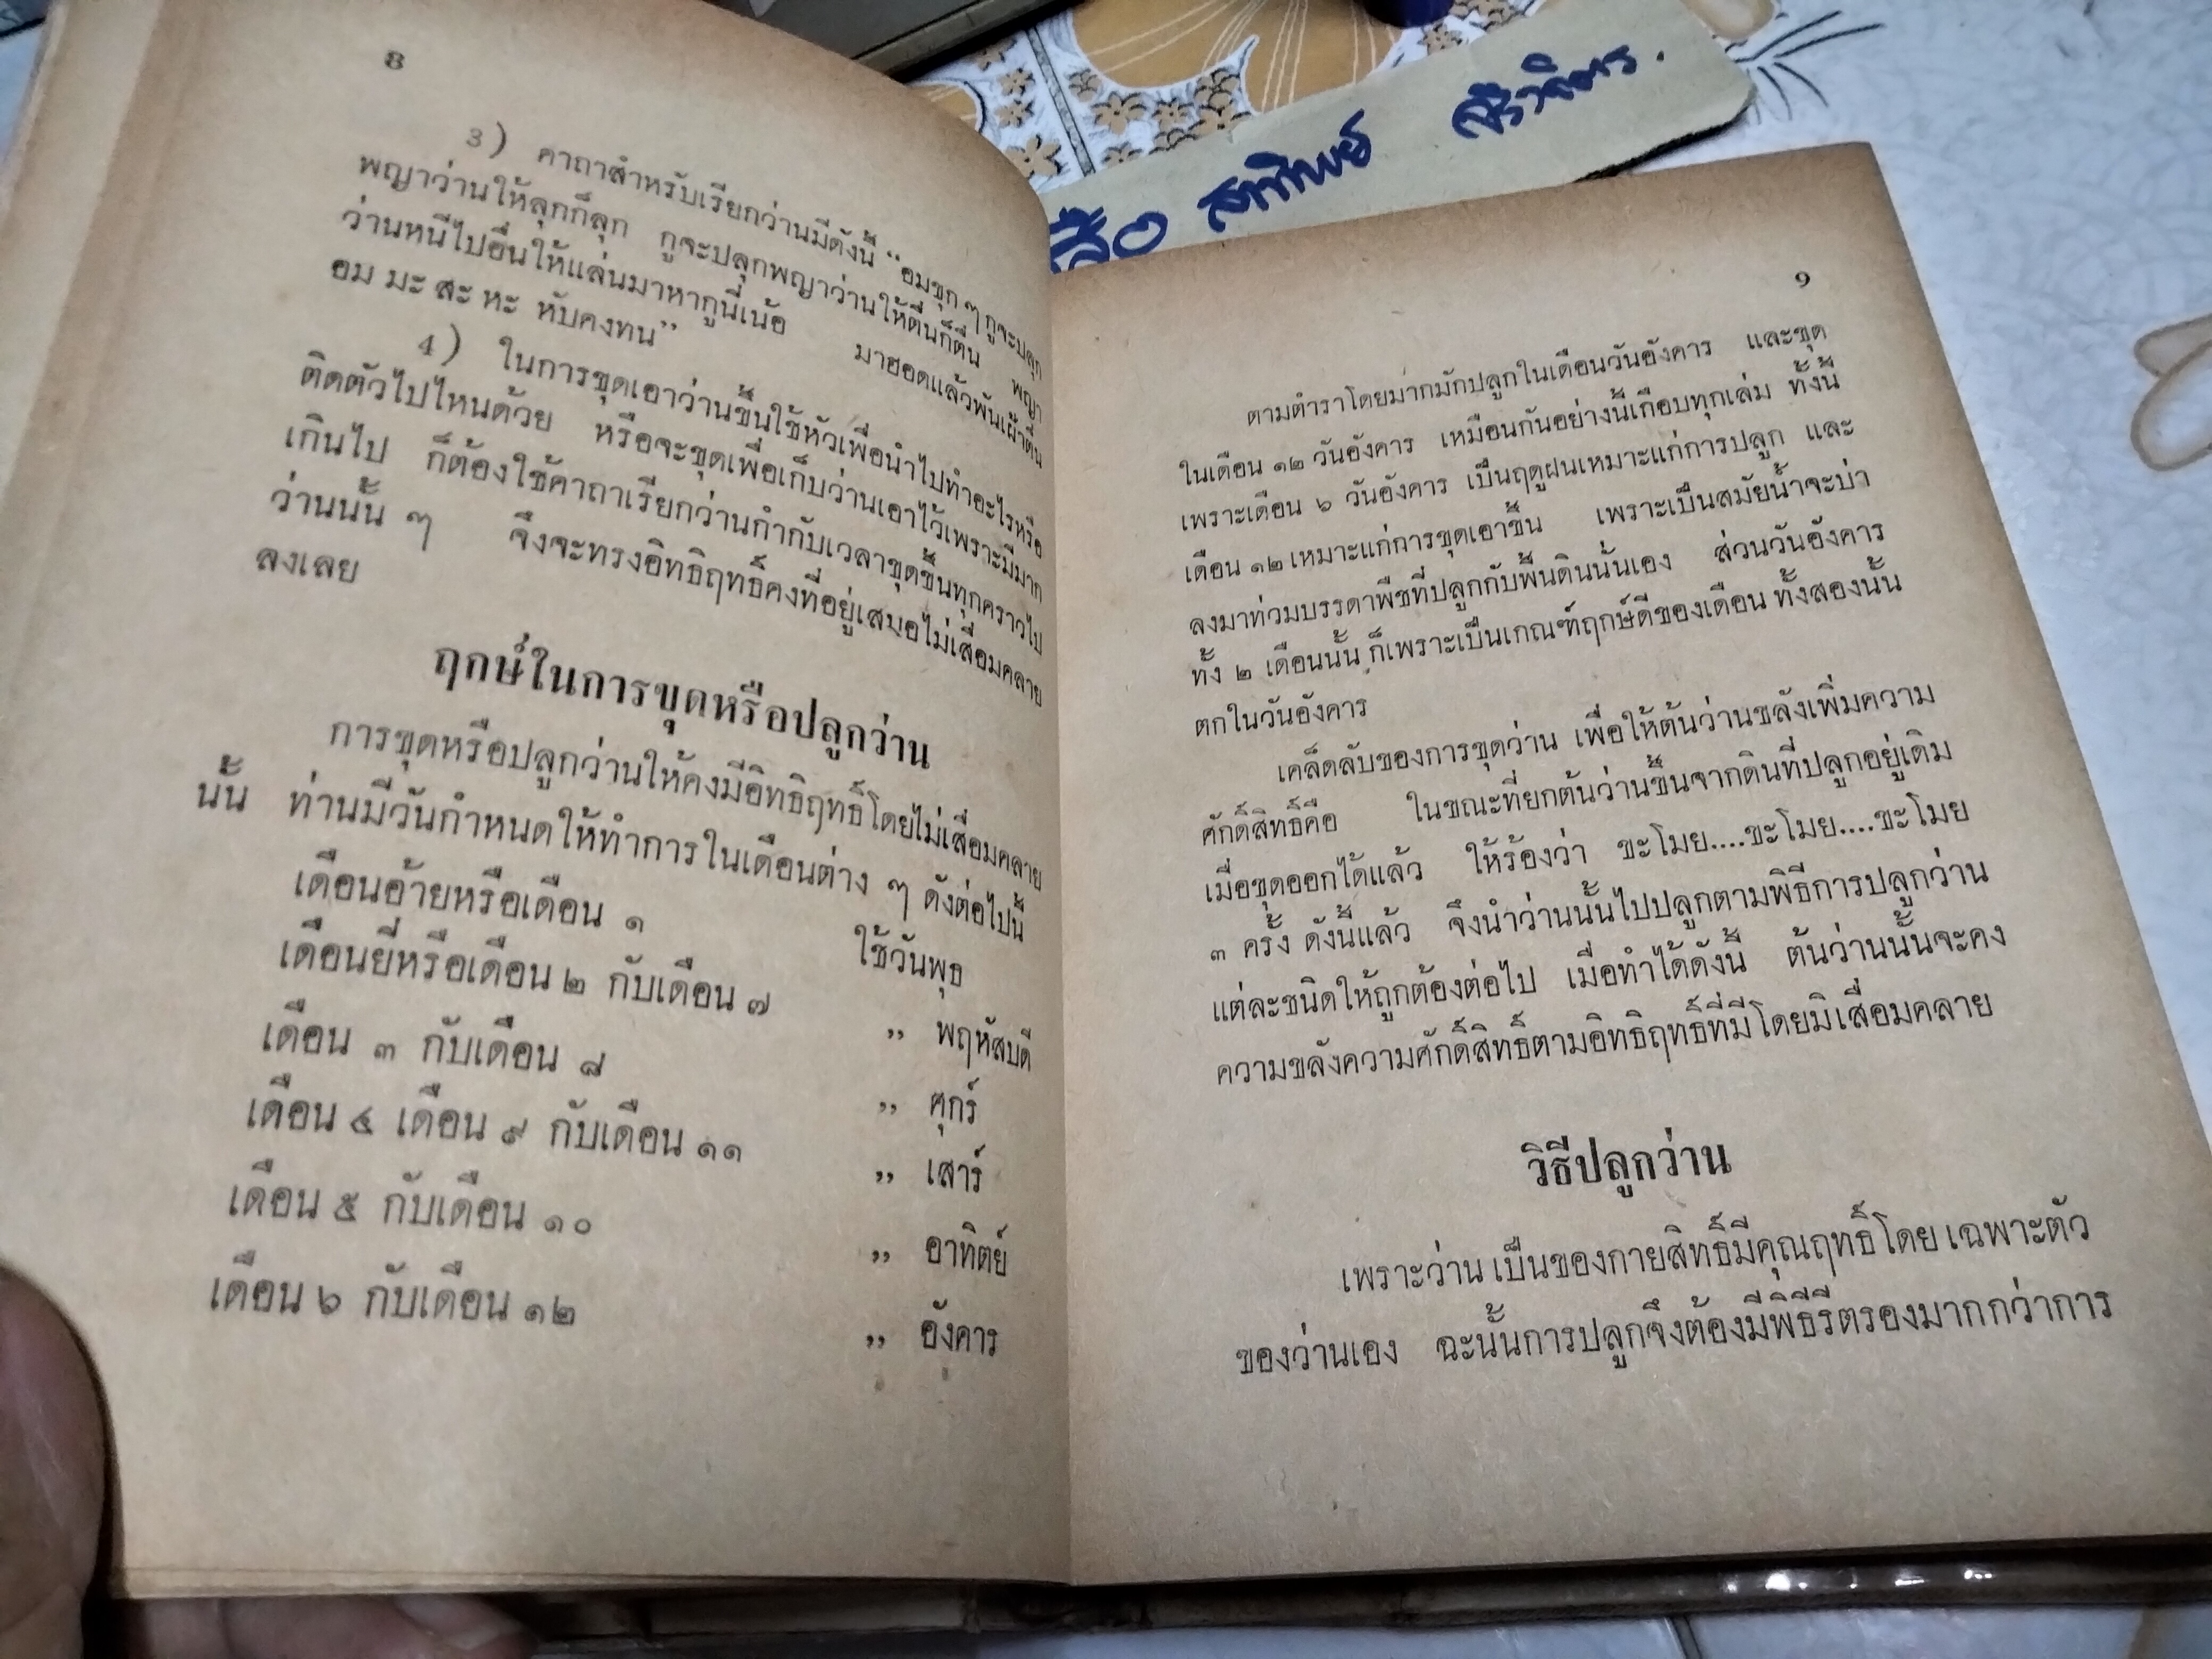 8
3) คาถาสำหรับเรียกว่านมีดังนี้ “อมขุก ๆ กูจะปลุก
พญาว่านให้ลุกก็ลุก กูจะปลุกพญาว่านให้ตื่นก็ตื่น พญา
ว่านหนีไปอื่นให้แล่นมาหากูนี่เน้อ มาฮอดแล้วพันเฝ้าตื่น
อม มะ สะ หะ หับคงทน”
4) ในการขุดเอาว่านขึ้นใช้หัวเพื่อนำไปทำอะไรหรือ
ติดตัวไปไหนด้วย หรือจะขุดเพื่อเก็บว่านเอาไว้เพราะมีมาก
เกินไป ก็ต้องใช้คาถาเรียกว่านกำกับเวลาขุดขึ้นทุกคราวไป
ว่านนั้น ๆ จึงจะทรงอิทธิฤทธิ์คงที่อยู่เสมอไม่เสื่อมคลาย
ลงเลย
ฤกษ์ในการขุดหรือปลูกว่าน
การขุดหรือปลูกว่านให้คงมีอิทธิฤทธิ์โดยไม่เสื่อมคลาย
นั้น ท่านมีวันกำหนดให้ทำการในเดือนต่าง ๆ ดังต่อไปนี้
เดือนอ้ายหรือเดือน ๑ ใช้วันพุธ
เดือนยี่หรือเดือน ๒ กับเดือน ๗ ” พฤหัสบดี
เดือน ๓ กับเดือน ๘ ” ศุกร์
เดือน ๔ เดือน ๙ กับเดือน ๑๑ ” เสาร์
เดือน ๕ กับเดือน ๑๐ ” อาทิตย์
เดือน ๖ กับเดือน ๑๒ ” อังคาร
สุทิพย์
9
ตามตำราโดยมากมักปลูกในเดือนวันอังคาร และขุด
ในเดือน ๑๒ วันอังคาร เหมือนกันอย่างนี้เกือบทุกเล่ม ทั้งนี้
เพราะเดือน ๖ วันอังคาร เป็นฤดูฝนเหมาะแก่การปลูก และ
เดือน ๑๒ เหมาะแก่การขุดเอาขึ้น เพราะเป็นสมัยน้ำจะบ่า
ลงมาท่วมบรรดาพืชที่ปลูกกับพื้นดินนั่นเอง ส่วนวันอังคาร
ทั้ง ๒ เดือนนั้น ก็เพราะเป็นเกณฑ์ฤกษ์ดีของเดือน ทั้งสองนั้น
ตกในวันอังคาร
เคล็ดลับของการขุดว่าน เพื่อให้ต้นว่านขลังเพิ่มความ
ศักดิ์สิทธิ์คือ ในขณะที่ยกต้นว่านขึ้นจากดินที่ปลูกอยู่เดิม
เมื่อขุดออกได้แล้ว ให้ร้องว่า ขะโมย....ขะโมย....ขะโมย
๓ ครั้ง ดังนี้แล้ว จึงนำว่านนั้นไปปลูกตามพิธีการปลูกว่าน
แต่ละชนิดให้ถูกต้องต่อไป เมื่อทำได้ดังนี้ ต้นว่านนั้นจะคง
ความขลังความศักดิ์สิทธิ์ตามอิทธิฤทธิ์ที่มีโดยมิเสื่อมคลาย
วิธีปลูกว่าน
เพราะว่าน เป็นของกายสิทธิ์มีคุณฤทธิ์โดย เฉพาะตัว
ของว่านเอง ฉะนั้นการปลูกจึงต้องมีพิธีรีตรองมากกว่าการ